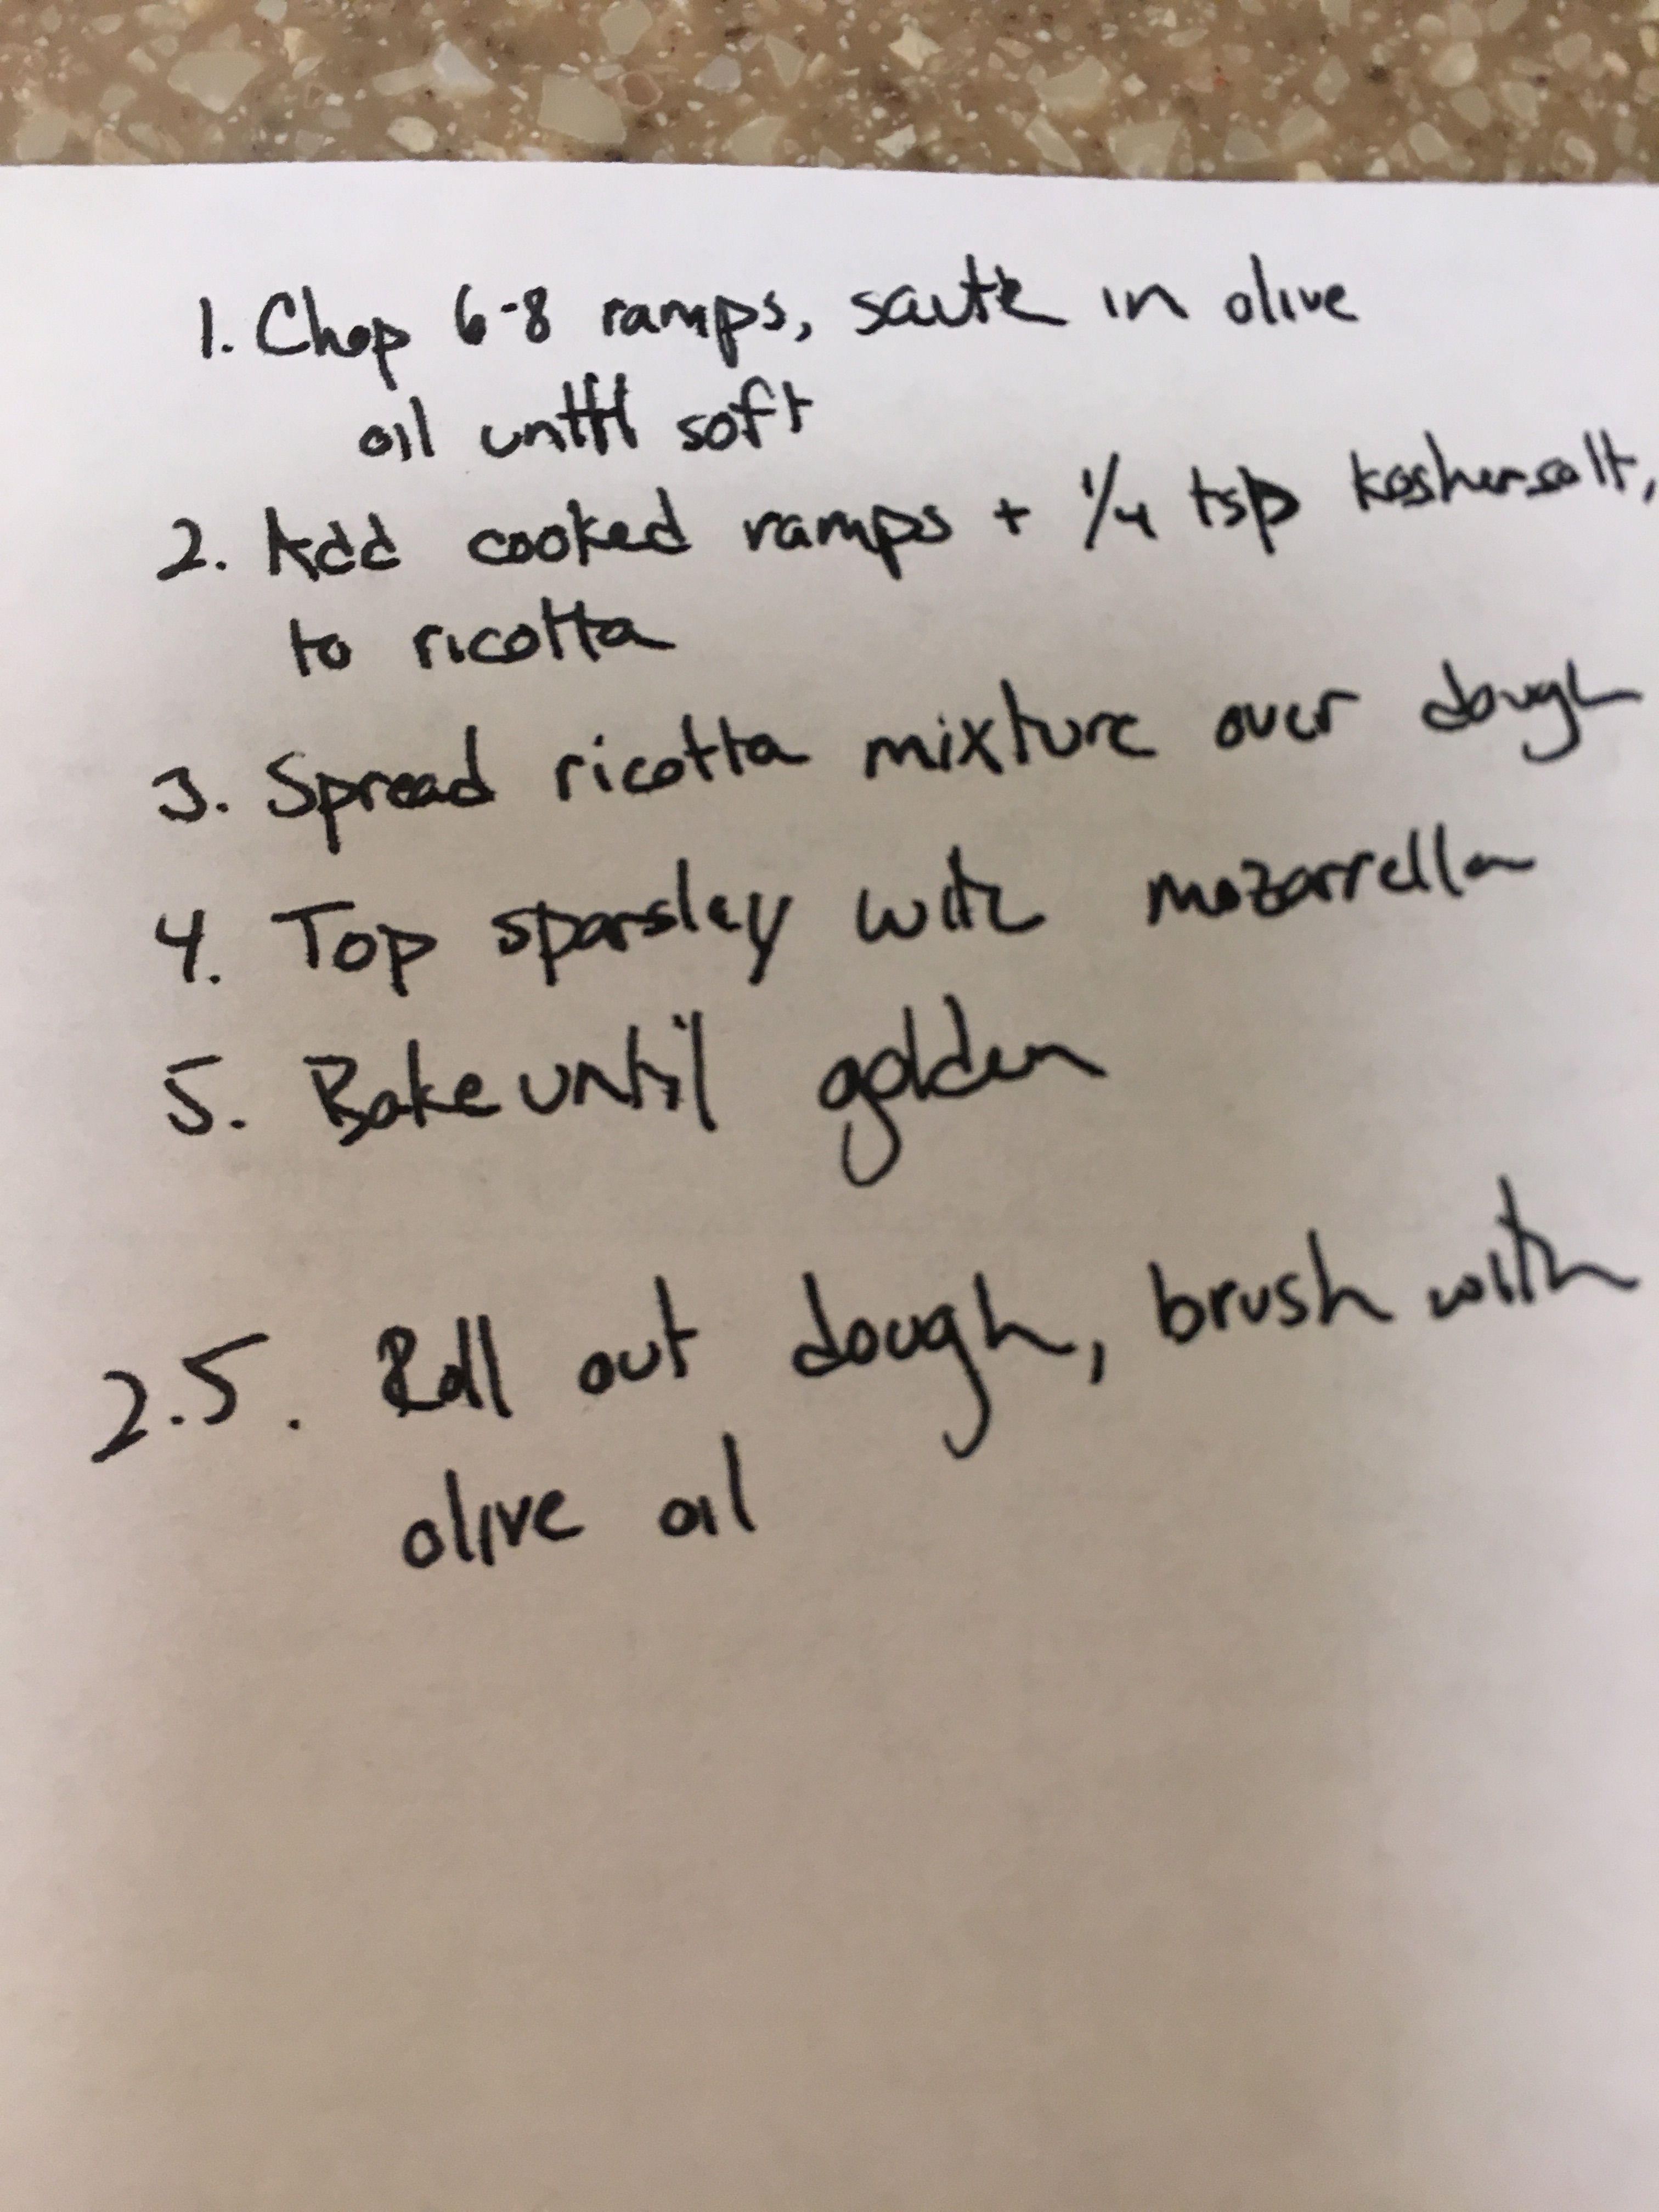 1. Chop 6-8 ramps, saute in olive
oil until soft
2. Add cooked ramps + 1/4 tsp kosher salt,
to ricotta
3. Spread ricotta mixture over dough
4. Top sparsley with mozarrella
5. Bake until golden
2.5. Roll out dough, brush with
olive oil